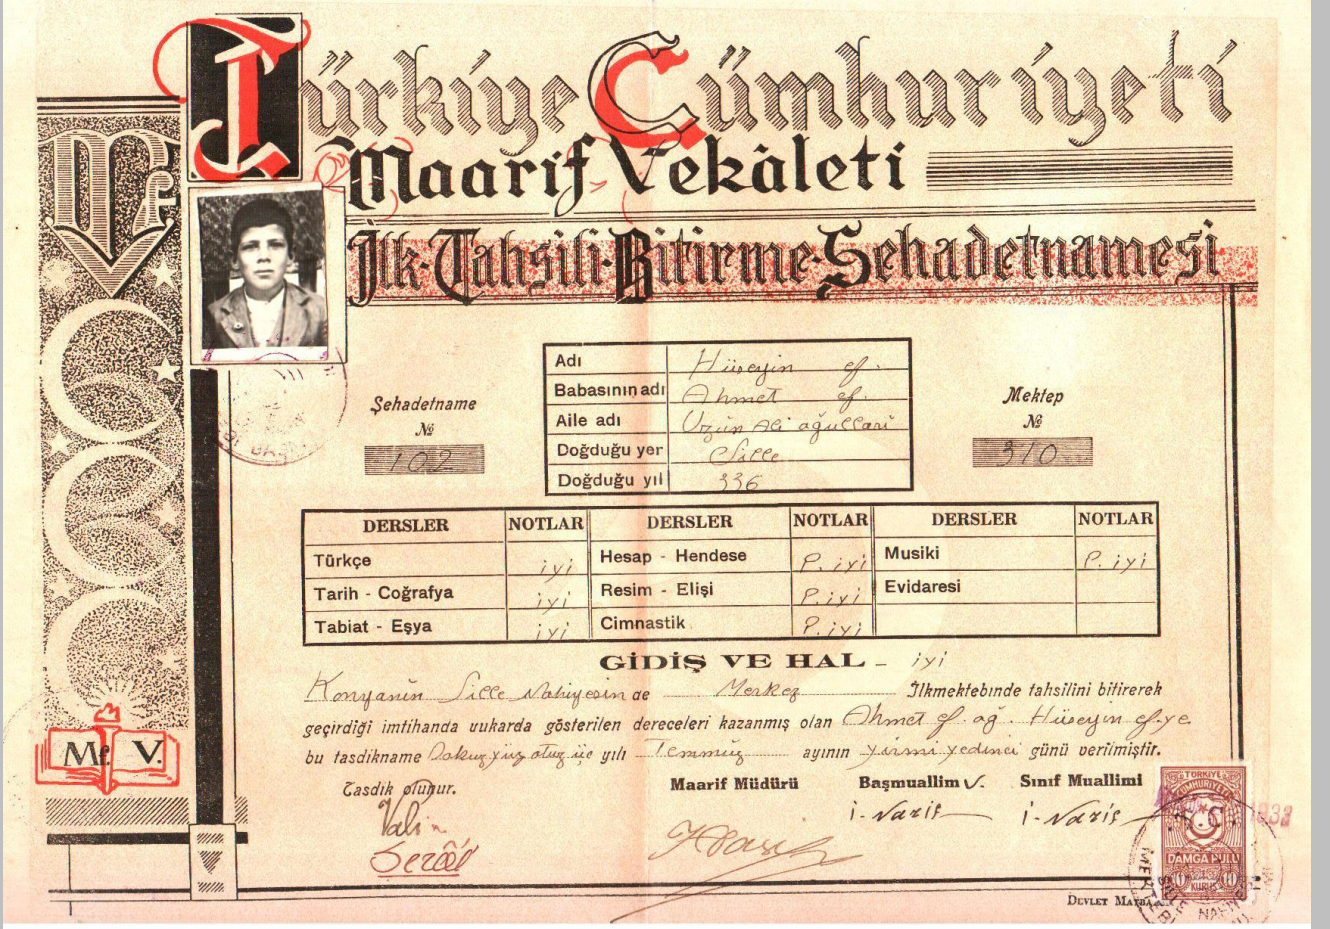 Türkiye Cümhuriyeti
Maarif Vekâleti
İlk-Tahsili-Bitirme-Şehadetnamesi
Şehadetname
№
102
Adı Hüseyin ef.
Babasının adı Ahmet ef.
Aile adı Uzun Ali oğulları
Doğduğu yer Sille
Doğduğu yıl 336
Mektep
№
310
DERSLER NOTLAR DERSLER NOTLAR DERSLER NOTLAR
Türkçe iyi Hesap - Hendese P. iyi Musiki P. iyi
Tarih - Coğrafya iyi Resim - Elişi P. iyi Evidaresi
Tabiat - Eşya iyi Cimnastik P. iyi
GİDİŞ VE HAL - iyi
Konyanın Sille Nahiyesinde Merkez İlkmektebinde tahsilini bitirerek
geçirdiği imtihanda uukarda gösterilen dereceleri kazanmış olan Ahmet ef. oğ. Hüseyin ef.ye
bu tasdikname Dokuz yüz otuz üç yılı Temmuz ayının yirmi yedinci günü verilmiştir.
Tasdik olunur. Maarif Müdürü Başmuallim V. Sınıf Muallimi
Vali
Mf. V.
TÜRKİYE
CUMHURİYETİ
T.C.
DAMGA PULU
10 10
KURUŞ
DEVLET